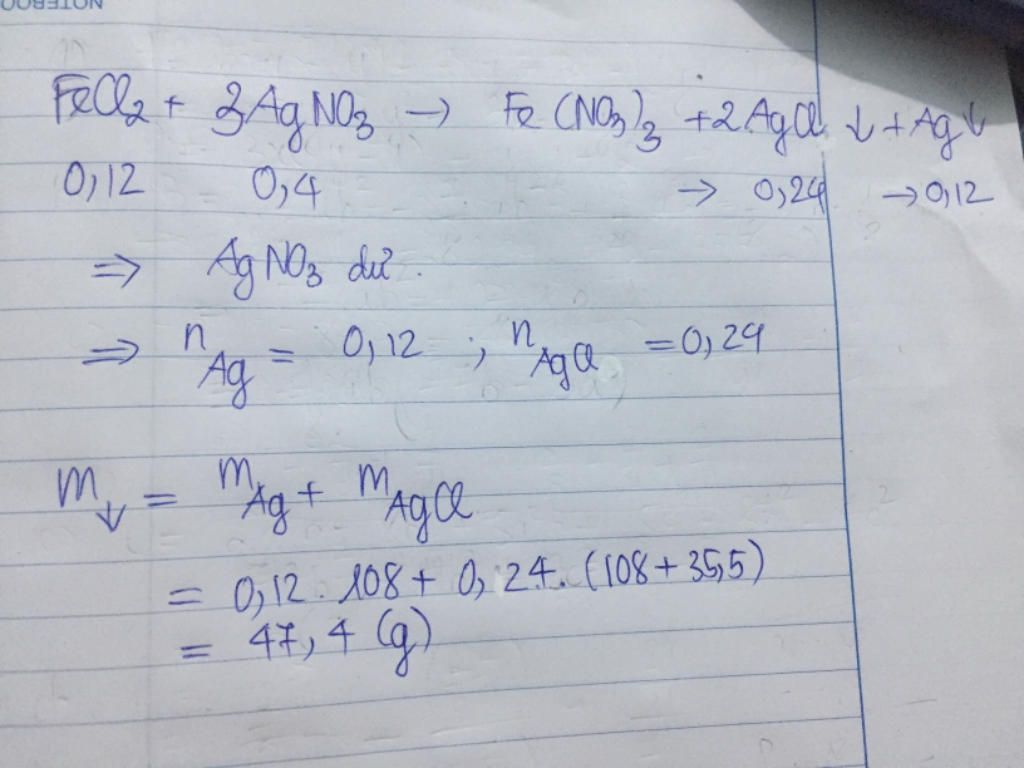 NOTEBOO
FeCl₂ + 3AgNO₃ → Fe(NO₃)₃ + 2AgCl ↓ + Ag↓
0,12 0,4 → 0,24 → 0,12
⇒ AgNO₃ dư.
⇒ n_Ag = 0,12 ; n_AgCl = 0,24
m↓ = m_Ag + m_AgCl
= 0,12 . 108 + 0,24 . (108 + 35,5)
= 47,4 (g)